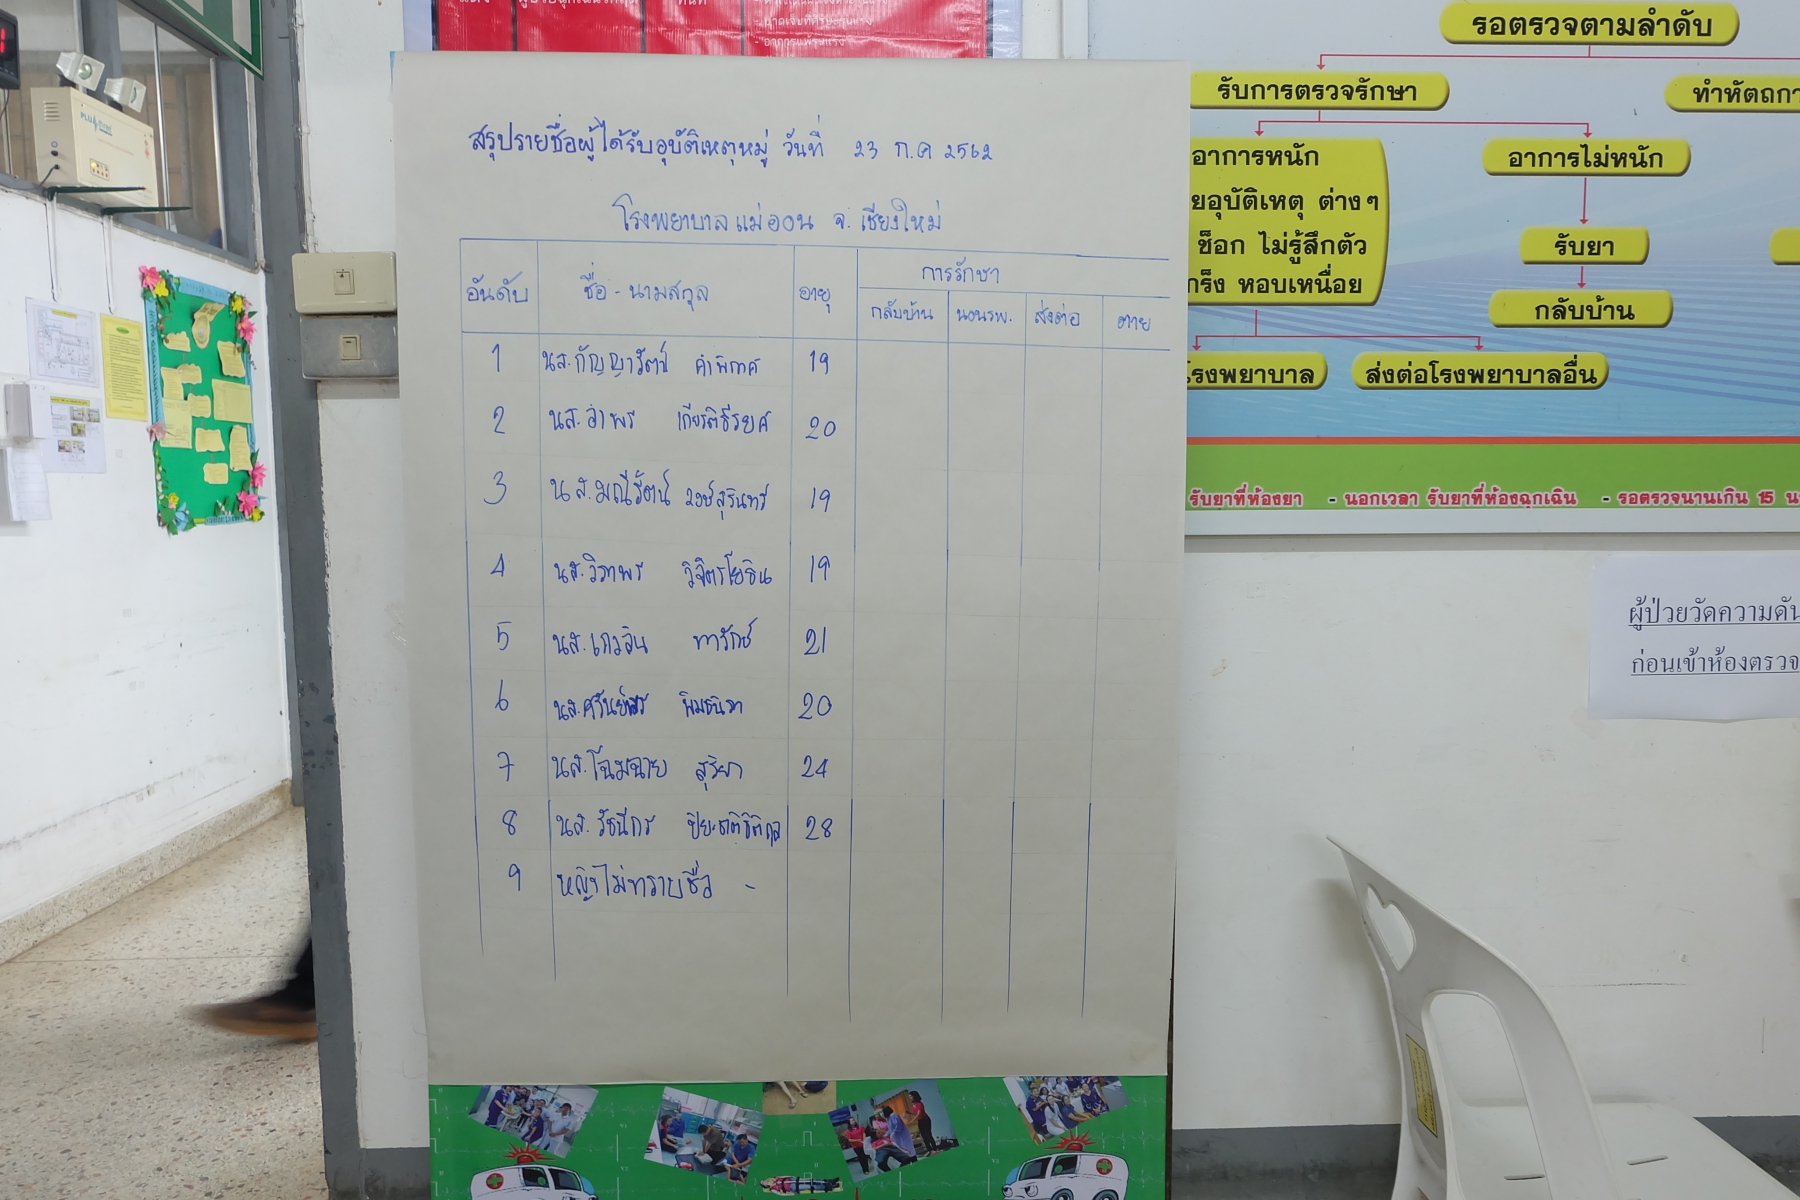 สรุปรายชื่อผู้ได้รับอุบัติเหตุหมู่ วันที่ 23 ก.ค 2562
โรงพยาบาลแม่ออน จ. เชียงใหม่
อันดับ ชื่อ - นามสกุล อายุ การรักษา
กลับบ้าน นอนรพ. ส่งต่อ ตาย
1 นส.กัญญารัตน์ คำพิทาศ 19
2 นส.อำพร เกียรติธีรยศ 20
3 นส.มณีรัตน์ วงษ์สุรินทร์ 19
4 นส.วิภาพร วิจิตรโยธิน 19
5 นส.เกวลิน ทารักษ์ 21
6 นส. พิมธนิภา 20
7 นส.โฉมฉาย สุริยา 24
8 นส. รัชนีกร 28
9 หญิงไม่ทราบชื่อ -
รอตรวจตามลำดับ
รับการตรวจรักษา
อาการหนัก
อาการไม่หนัก
ยอุบัติเหตุ ต่างๆ
ช็อก ไม่รู้สึกตัว
กร็ง หอบเหนื่อย
รับยา
กลับบ้าน
โรงพยาบาล
ส่งต่อโรงพยาบาลอื่น
รับยาที่ห้องยา - นอกเวลา รับยาที่ห้องฉุกเฉิน - รอตรวจนานเกิน 15
ผู้ป่วยวัดความดัน
ก่อนเข้าห้องตรวจ